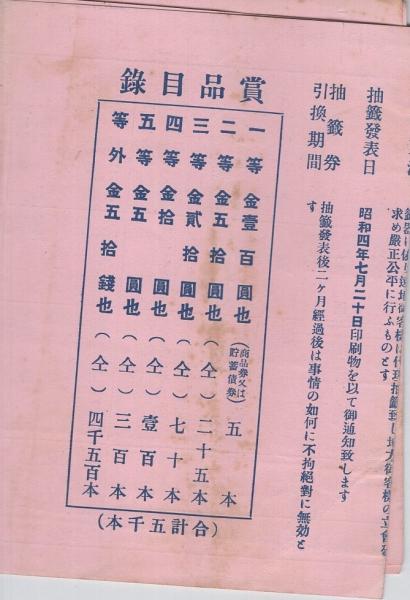 求め嚴正公平に行ふものとす
抽籤發表日
昭和四年七月二十日印刷物を以て御通知致します
抽籤券
引換期間
抽籤發表後二ヶ月經過後は事情の如何に不拘絕對に無効と
す
賞品目錄
一等 金壹百圓也 (商品券又は貯蓄債券) 五本
二等 金五拾圓也 (仝) 二十五本
三等 金貳拾圓也 (仝) 七十本
四等 金拾圓也 (仝) 壹百本
五等 金五圓也 (仝) 三百本
等外 金五拾錢也 (仝) 四千五百本
(合計五千本)